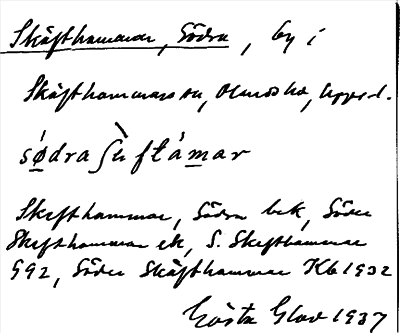 Skäfthammar, Södra, by i
Skäfthammars sn, Olands hd, Uppsl.
sø̀dra ʃæftámar
Skefthammar, Södra bek, Söder
Skefthammar ek, S. Skefthammar
G92, Söder Skäfthammar Kb 1932
Gösta Glav 1937